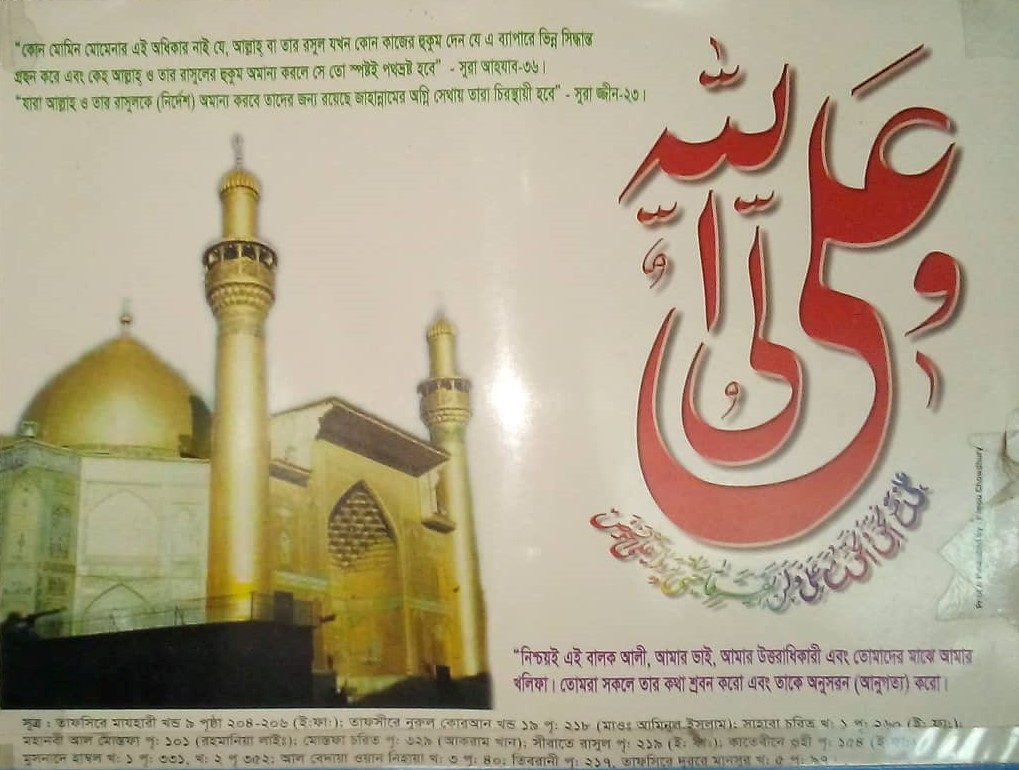 "কোন মোমিন মোমেনার এই অধিকার নাই যে, আল্লাহ্ বা তার রসুল যখন কোন কাজের হুকুম দেন যে এ ব্যাপারে ভিন্ন সিদ্ধান্ত
গ্রহন করে এবং কেহ আল্লাহ্ ও তার রাসুলের হুকুম অমান্য করলে সে তো স্পষ্টই পথভ্রষ্ট হবে" - সুরা আহযাব-৩৬।
"যারা আল্লাহ্ ও তার রাসুলকে (নির্দেশ) অমান্য করবে তাদের জন্য রয়েছে জাহান্নামের অগ্নি সেথায় তারা চিরস্থায়ী হবে" - সূরা জ্বীন-২৩।
علي ولي الله
"নিশ্চয়ই এই বালক আলী, আমার ভাই, আমার উত্তরাধিকারী এবং তোমাদের মাঝে আমার
খলিফা। তোমরা সকলে তার কথা শ্রবন করো এবং তাকে অনুসরন (আনুগত্য) করো।
সূত্র : তাফসিরে মাযহারী খন্ড ৯ পৃষ্ঠা ২০৪-২০৬ (ই:ফা:); তাফসীরে নুরুল কোরআন খন্ড ১৯ পৃ: ২১৮ (মাওঃ আমিনুল ইসলাম); সাহাবা চরিত খ: ১ পৃ:
মহানবী আল মোস্তফা পৃ: ১০১ (রহমানিয়া লাইঃ); মোস্তফা চরিত পৃ: ৩২৯ (আকরাম খান); সীরাতে রাসুল পৃ: ২১৯ (ই: ফা:); কাতেবীনে ওহী পৃ: ১৫৪ (ই:ফা:)
মুসনাদে হাম্বল খ: ১ পৃ: ৩৩১, খ: ২ পৃ ৩৫২; আল বেদায়া ওয়ান নিহায়া খ: ৩ পৃ: ৪০; তিবরানী পৃ: ২১৭, তাফসিরে দুররে মানসুর খ: ৫ পৃ:
Chowdhury